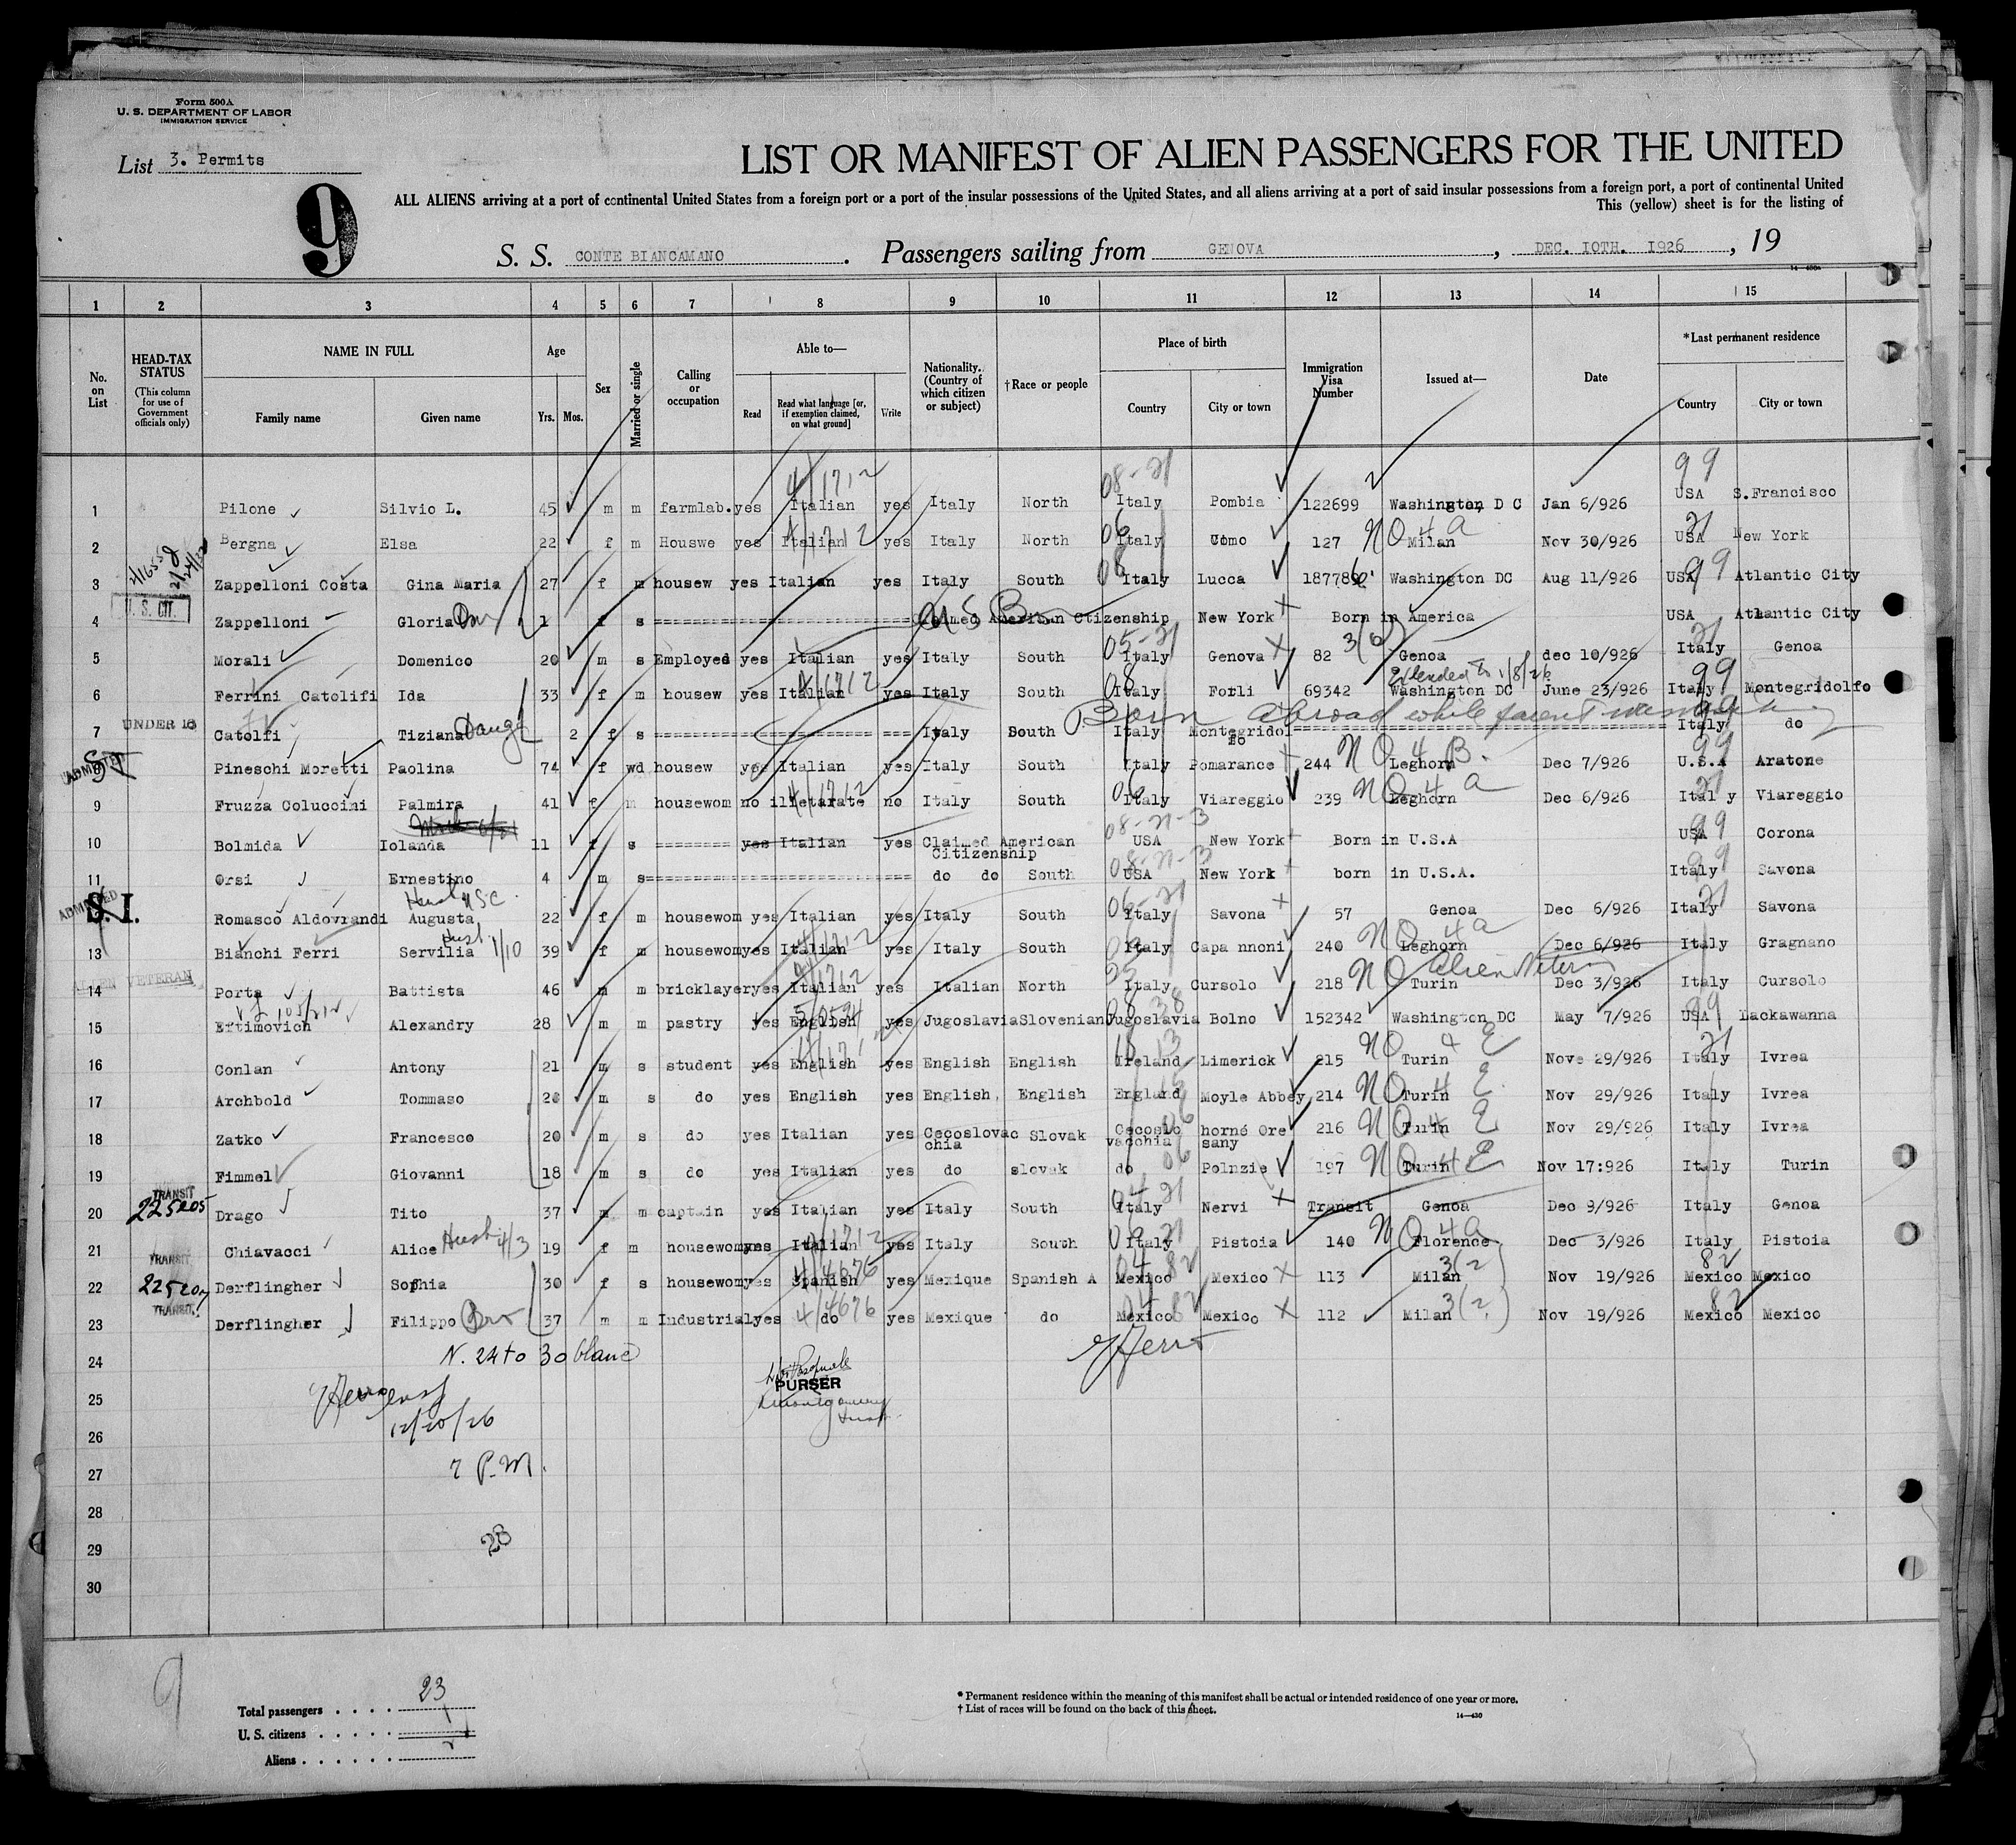 Form 500A
U. S. DEPARTMENT OF LABOR
IMMIGRATION SERVICE
List 3. Permits
9
LIST OR MANIFEST OF ALIEN PASSENGERS FOR THE UNITED
ALL ALIENS arriving at a port of continental United States from a foreign port or a port of the insular possessions of the United States, and all aliens arriving at a port of said insular possessions from a foreign port, a port of continental United
This (yellow) sheet is for the listing of
S. S. CONTE BIANCAMANO . Passengers sailing from GENOVA , DEC. IOTH. I926 , 19
1 2 3 4 5 6 7 8 9 10 11 12 13 14 15
No. on List
HEAD-TAX STATUS (This column for use of Government officials only)
NAME IN FULL Family name Given name
Age Yrs. Mos.
Sex
Married or single
Calling or occupation
Able to— Read Read what language [or, if exemption claimed, on what ground] Write
Nationality. (Country of which citizen or subject)
†Race or people
Place of birth Country City or town
Immigration Visa Number
Issued at—
Date
*Last permanent residence Country City or town
1 Pilone Silvio L. 45 m m farmlab. yes Italian yes Italy North Italy Pombia 122699 Washington D C Jan 6/926 USA S.Francisco
2 Bergna Elsa 22 f m Houswe yes Italian yes Italy North Italy Como 127 NO 4 a Milan Nov 30/926 USA New York
3 Zappelloni Costa Gina Maria 27 f m housew yes Italian yes Italy South Italy Lucca 187786 Washington DC Aug 11/926 USA Atlantic City
U. S. CIT.
4 Zappelloni Gloria 1 f s American Ctizenship New York Born in America USA Atlantic City
5 Morali Domenico 20 m s Employed yes Italian yes Italy South Italy Genova 82 Genoa dec 10/926 Italy Genoa
6 Ferrini Catolifi Ida 33 f m housew yes Italian yes Italy South Italy Forli 69342 Extended to 1/8/26 Washington DC June 23/926 Italy Montegridolfo
Born abroad while parent
UNDER 16
7 Catolfi Tiziana Daug 2 f s Italy South Italy Montegridol fo Italy do
ADMITTED
8 Pineschi Moretti Paolina 74 f wd housew yes Italian yes Italy South Italy Pomarance 244 NO 4 B. Leghorn Dec 7/926 U.S.A Aratone
9 Fruzza Coluccini Palmira 41 f m housewom no illetarate no Italy South Italy Viareggio 239 NO 4 a Leghorn Dec 6/926 Italy Viareggio
10 Bolmida Iolanda 11 f s yes Italian yes Claimed American Citizenship USA New York Born in U.S.A USA Corona
11 Orsi Ernestino 4 m s do do South USA New York born in U.S.A. Italy Savona
ADMITTED S.I.
Romasco Aldovrandi Augusta Husb USC 22 f m housewom yes Italian yes Italy South Italy Savona 57 Genoa Dec 6/926 Italy Savona
13 Bianchi Ferri Servilia Husb 1/10 39 f m housewom yes Italian yes Italy South Italy Capa nnoni 240 NO 4 a Leghorn Dec 6/926 Italy Gragnano
ALIEN VETERAN
14 Porta Battista 46 m m bricklayer yes Italian yes Italian North Italy Cursolo 218 NO Alien Veteran Turin Dec 3/926 Italy Cursolo
15 Eftimovich Alexandry 28 m m pastry yes English yes Jugoslavia Slovenian Jugoslavia Bolno 152342 Washington DC May 7/926 USA Lackawanna
16 Conlan Antony 21 m s student yes English yes English English Ireland Limerick 215 NO 4 E Turin Nove 29/926 Italy Ivrea
17 Archbold Tommaso 26 m s do yes English yes English. English England Moyle Abbey 214 NO 4 E. Turin Nov 29/926 Italy Ivrea
18 Zatko Francesco 20 m s do yes Italian yes Cecoslovac chia Slovak Cecoslo vacchia horné Ore sany 216 NO 4 E Turin Nov 29/926 Italy Ivrea
19 Fimmel Giovanni 18 m s do yes Italian yes do slovak do Polnzie 197 NO 4 E Turin Nov 17:926 Italy Turin
TRANSIT
20 Drago Tito 37 m m captain yes Italian yes Italy South Italy Nervi Transit Genoa Dec 9/926 Italy Genoa
21 Chiavacci Alice Husb 4/3 19 f m housewom yes Italian yes Italy South Italy Pistoia 140 NO 4a Florence Dec 3/926 Italy Pistoia
TRANSIT
22 Derflingher Sophia 30 f s housewom yes Spanish yes Mexique Spanish A Mexico Mexico 113 3(2) Milan Nov 19/926 Mexico Mexico
TRANSIT
23 Derflingher Filippo Bro 37 m m Industrial yes do yes Mexique do Mexico Mexico 112 3(2) Milan Nov 19/926 Mexico Mexico
24 N. 24 to 30 blanc
25 PURSER
12/20/26
26
27 7 P.M.
28
29 23
30
9
Total passengers . . . . 23
U. S. citizens . . . . .
Aliens . . . . . .
* Permanent residence within the meaning of this manifest shall be actual or intended residence of one year or more.
† List of races will be found on the back of this sheet.
14—430